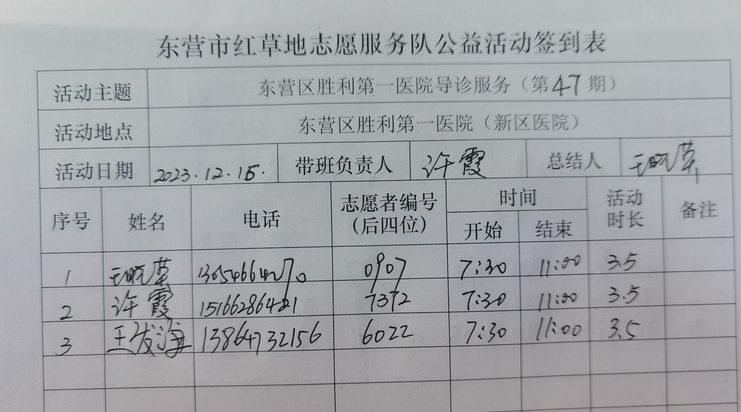 东营市红草地志愿服务队公益活动签到表
活动主题 东营区胜利第一医院导诊服务（第47期）
活动地点 东营区胜利第一医院（新区医院）
活动日期 2023.12.15. 带班负责人 许霞 总结人
序号 姓名 电话 志愿者编号（后四位） 时间 开始 结束 活动时长 备注
1 0907 7:30 11:00 3.5
2 许霞 15166286421 7372 7:30 11:00 3.5
3 王发海 13864732156 6022 7:30 11:00 3.5